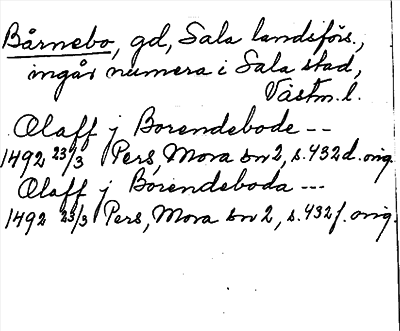 Bårnebo, gd, Sala landsförs.,
ingår numera i Sala stad,
Västm. l.
Olaff j Borendebode --
1492 23/3 Pers, Mora sn 2, s. 432 d. orig.
Olaff j Borendeboda ---
1492 23/3 Pers, Mora sn 2, s. 432 f. orig.